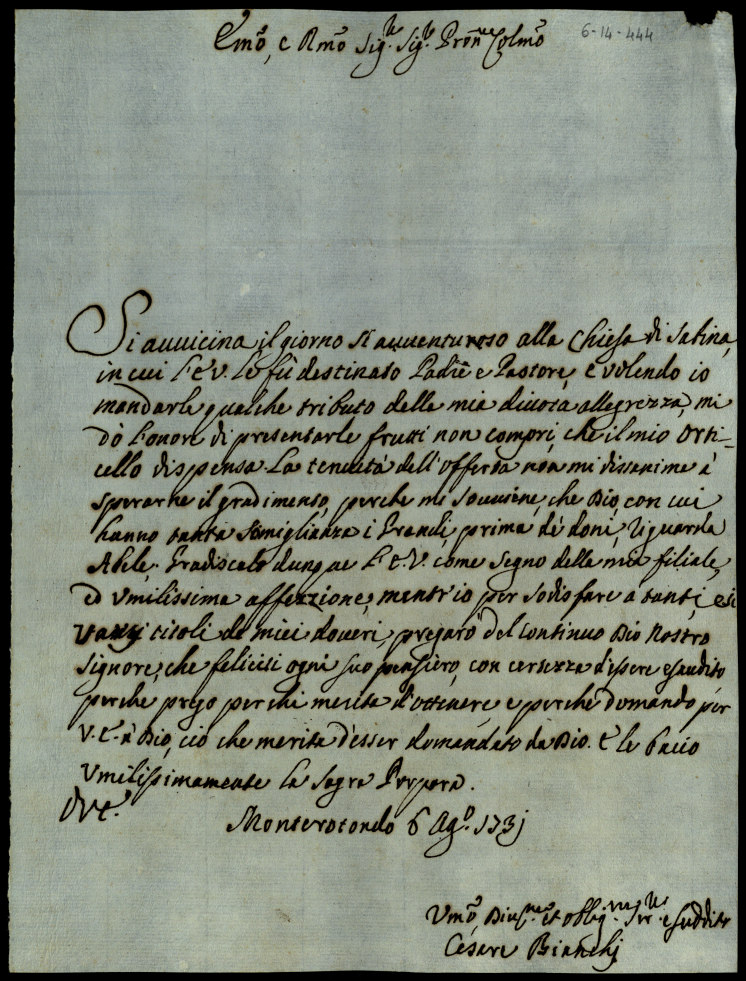 6-14-444
Emõ, e Rmõ Sig.re Sig.re Prõn Colmõ
Si auuicina il giorno sì auuenturoso alla Chiesa di Sabina,
in cui l'E.V. le fù destinato Padre e Pastore, e volendo io
mandarle qualche tributo della mia diuota allegrezza, mi
dò l'onore di presentarle frutti non compri, che il mio Orti-
cello dispensa. La tenuità dell'offerta nõn mi disanima à
sperarne il gradimento, perche mi souuiene, che Dio, con cui
hanno tanta somiglianza i Grandi, prima dè doni, riguarda
Abele. Gradiscalo dunque l'E.V. come segno della mia filiale,
ed Vmilissima affezzione, mentr'io per sodisfare à tanti, e sì
varij titoli de miei doueri, pregarò del continuo Dio Nostro
Signore, che feliciti ogni suo pensiero, con certezza d'essere esaudito
perche prego per chi merita d'ottenere e perche domando per
V.E. à Dio, ciò che merita d'esser domandato da Dio. E le bacio
Vmilissimamente la Sagra Porpora.
Monterotondo 6 Ag.o 173j
Vmõ, Diu.mo et obblig.mo Sre e suddito
Cesare Bianchj